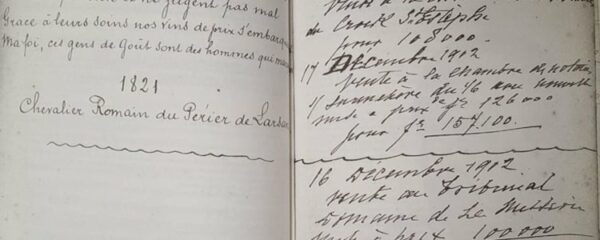 ne jugent pas mal
Grace à leurs soins nos vins de prix s'embarq
Ma foi, ces gens de Goût sont des hommes qui
1821
Chevalier Romain du Périer de Larsan
vente à la
du Crock St Estèphe
pour 108'000
17 Décembre 1912
vente à la chambre de notaires
mise à prix de fr 126000
pour fr 157.100.
16 Décembre 1912
vente au Tribunal
Domaine de La Mission
mise à prix 100 000